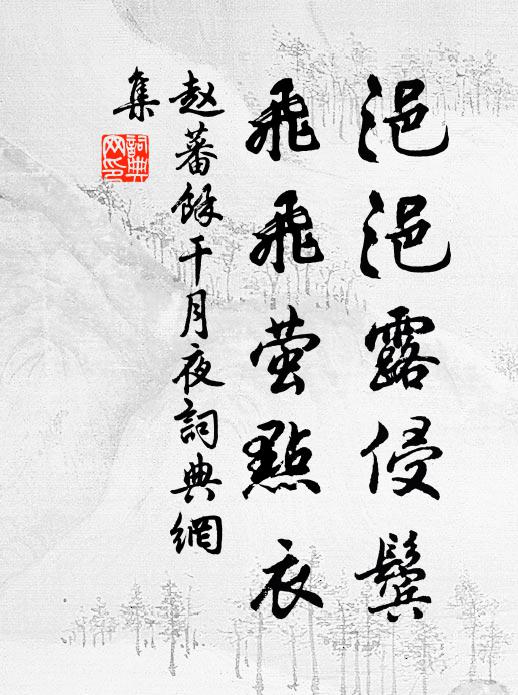 浥浥露侵鬓
飛飛萤點衣
赵蕃餘干月夜詞典網
集
詞典網印